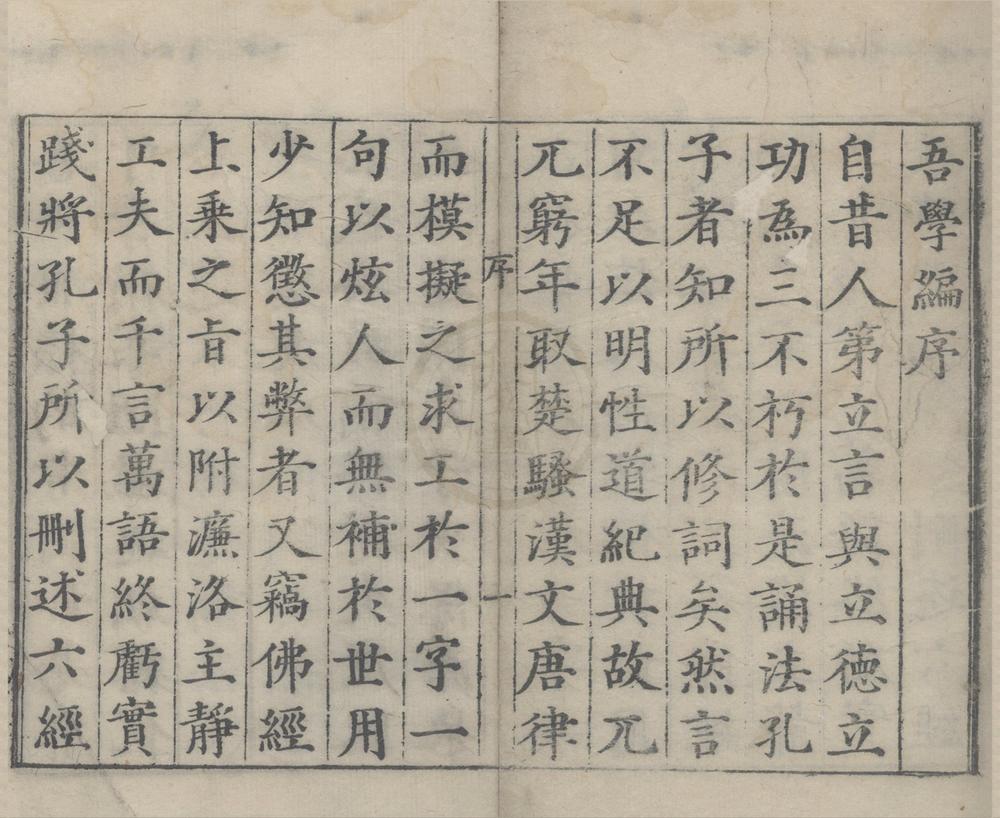 吾學編序
自昔人第立言與立德立
功爲三不朽於是誦法孔
子者知所以修詞矣然言
不足以明性道紀典故兀
兀窮年取楚騷漢文唐律
序 一
而模擬之求工於一字一
句以炫人而無補於世用
少知懲其弊者又竊佛經
上乘之旨以附濂洛主靜
工夫而千言萬語終虧實
踐將孔子所以刪述六經